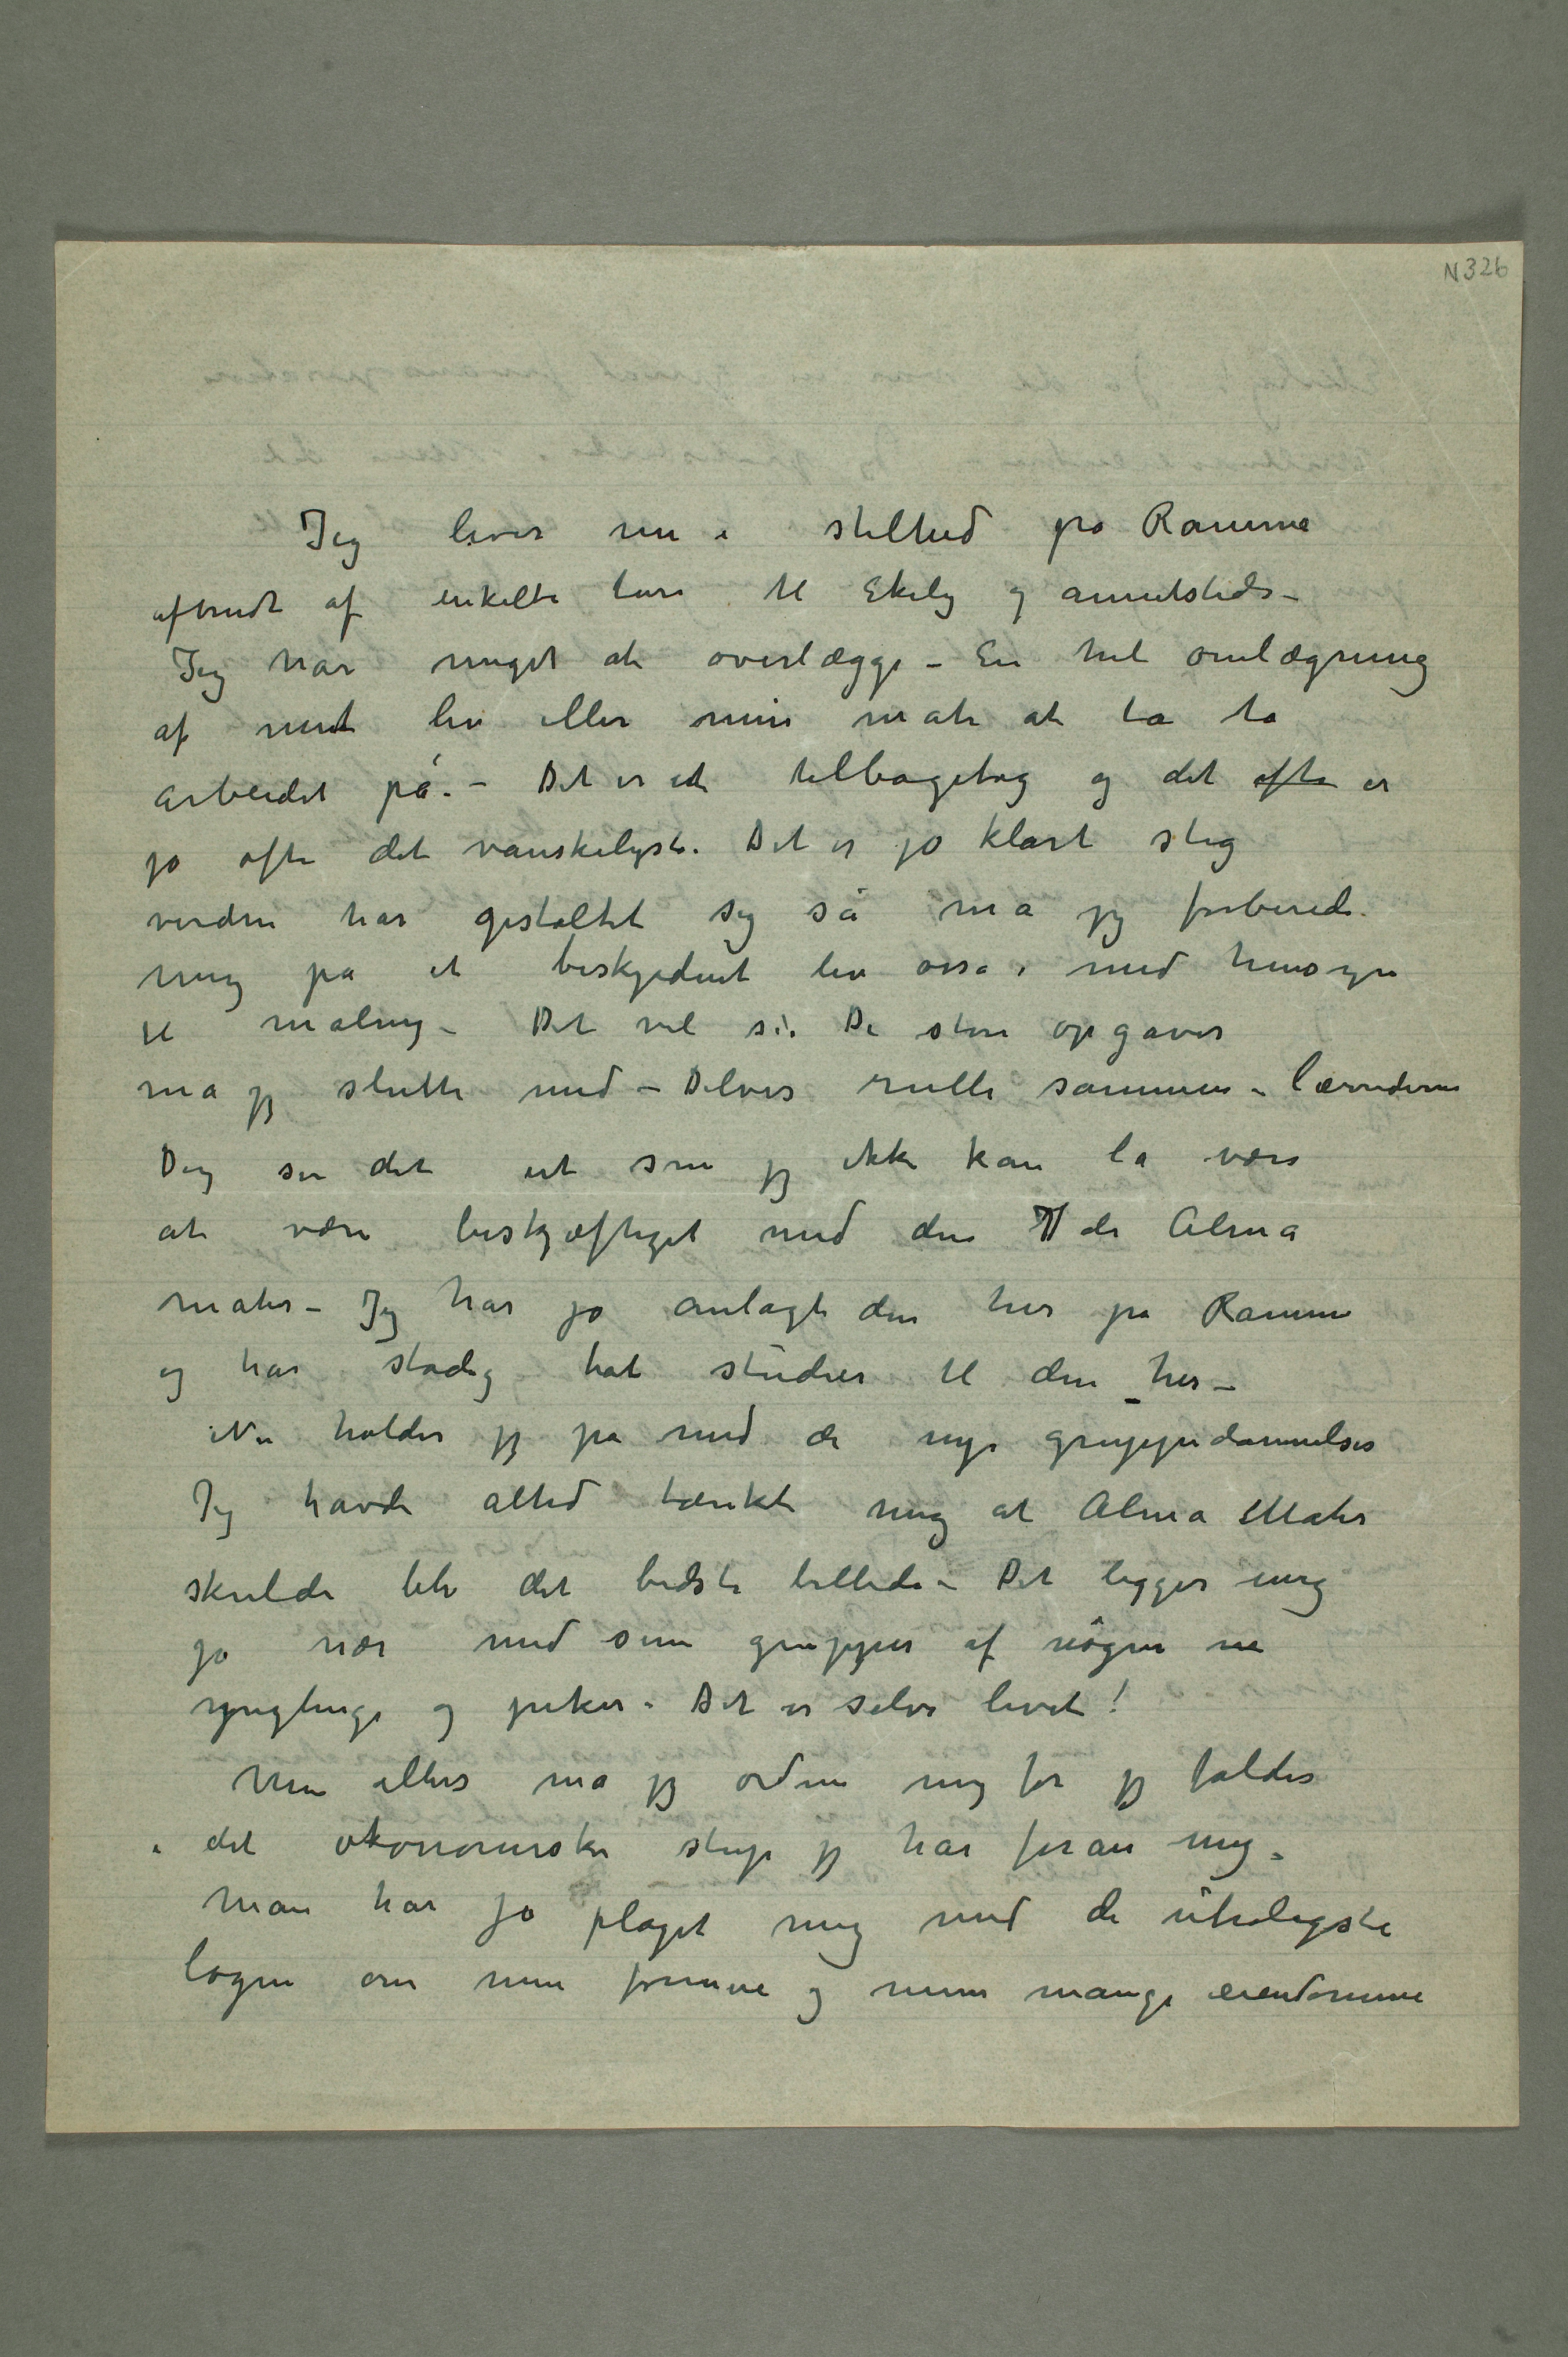 N 326
Jeg lever nu i stilhed på Ramme
afbrudt af enkelte ture til Ekely og annetsteds –
Jeg har meget at overlægge – En hel omlægning
af mit liv eller min måte at ta ta
arbeidet på. – Det er et tilbagetog og det ofte er
jo ofte det vanskeligste. Det er jo klart slig
verden har gestaltet sig så må jeg forberede
mig på et beskjedent liv osså i med hensyn
til maling – Det vil si: De store opgaver
må jeg slutte med – Delvis rulle sammen – lærrederne
Dog ser det ut som jeg ikke kan la være
at være beskjæftiget med den de Alma
mater – Jeg har jo anlagt den her på Ramme
og har stadig hat studier til den her –
Nu holder jeg på med de nye gruppedannelser
Jeg havde altid tænkt mig at Alma Mater
skulde bli det bedste billede – Det ligger mig
jo nær med sine grupper af nøgne
ynglinge og piker. Det er selve livet!
Men ellers må jeg ordne mig før jeg falder
i det økonomiske stup jeg har foran mig.
Man har jo plaget mig med de utroligste
løgne om min formue og mine mange eiendomme